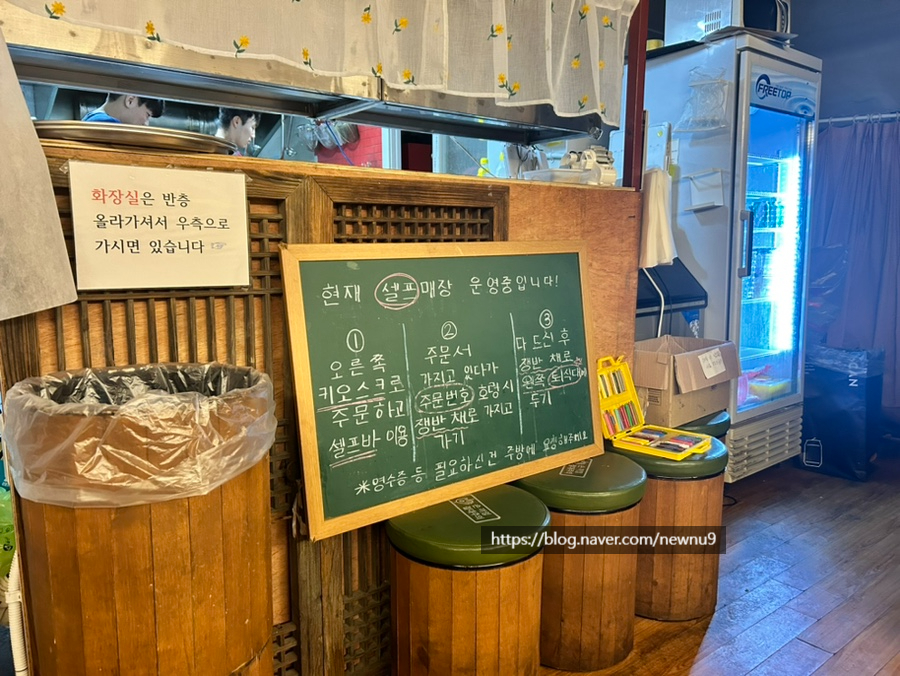 화장실은 반층
올라가셔서 우측으로
가시면 있습니다
FREETOP
현재 셀프매장 운영중입니다!
①
오른쪽
키오스크로
주문하고
셀프바 이용
②
주문서
가지고 있다가
주문번호 호명시
쟁반 채로 가지고
가기
③
다 드신 후
쟁반 채로
왼쪽 퇴식대에
두기
※영수증 등 필요하신건 주방에 요청해주세요
https://blog.naver.com/newnu9